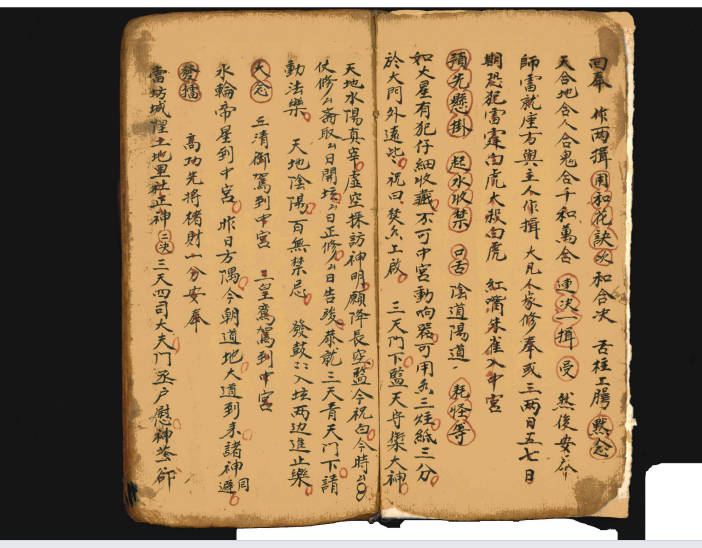 回奉 作两揖用和花訣欠和合决 舌柱上腭默念
天合地合人合鬼合千和萬合 連决一揖受 然後安奉
師當就座方與主人作揖 大凡人家修奉或三两日五七日
期恐犯雷霆白虎太殺白虎 紅嘴朱雀入中宮
預先懸掛 起水收禁 回舌陰道陽道 耗怪等
如大星有犯仔細收藏不可中宮動响器可用条三炷紙三分
於大門外遠 祝曰焚条上啟 三天門下監天守 大神
天地水陽真宰虛空採訪神明願降長空監今祝白今時
伏修 斋取 日開坛 日正修 日告竣恭就三天青天門下請
動法樂 天地陰陽百無禁忌 發鼓 入坛两边進止樂
大念 三清御駕到中宮 三皇鸞駕到中宮
水輪帝星到中宮 昨日方隅今朝道地大道到来諸神同避
發擂 高功先将猪財一分安奉
當坊城隍土地里社正神 二次 三天四司大夫門丞户慰神荼